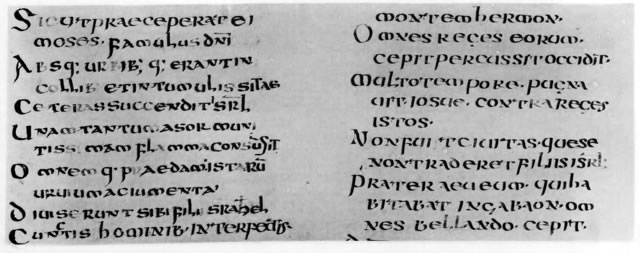 Sicut praeceperat ei
moses · famulus dn̄i
Absq; urbib; q; erant in
collib et in tumulis sitae
Ceteras succendit isr̄l
Unam tantum asor muni
tissimam flamma consumsit
Omnemq praedam istarū
urbium ac iumenta
Diuiserunt sibi filii srahel
Cunctis hominib · interfectis
montem hermon ·
Omnes reges eorum ·
cepit percussit occidit ·
Multo tempore · pugna
uit iosue · contra reges
istos ·
Non fuit ciuitas · que se
non traderet filiis isr̄l ·
Prater aeueum · qui ha
bitabat in gabaon · om
nes bellando · cepit ·